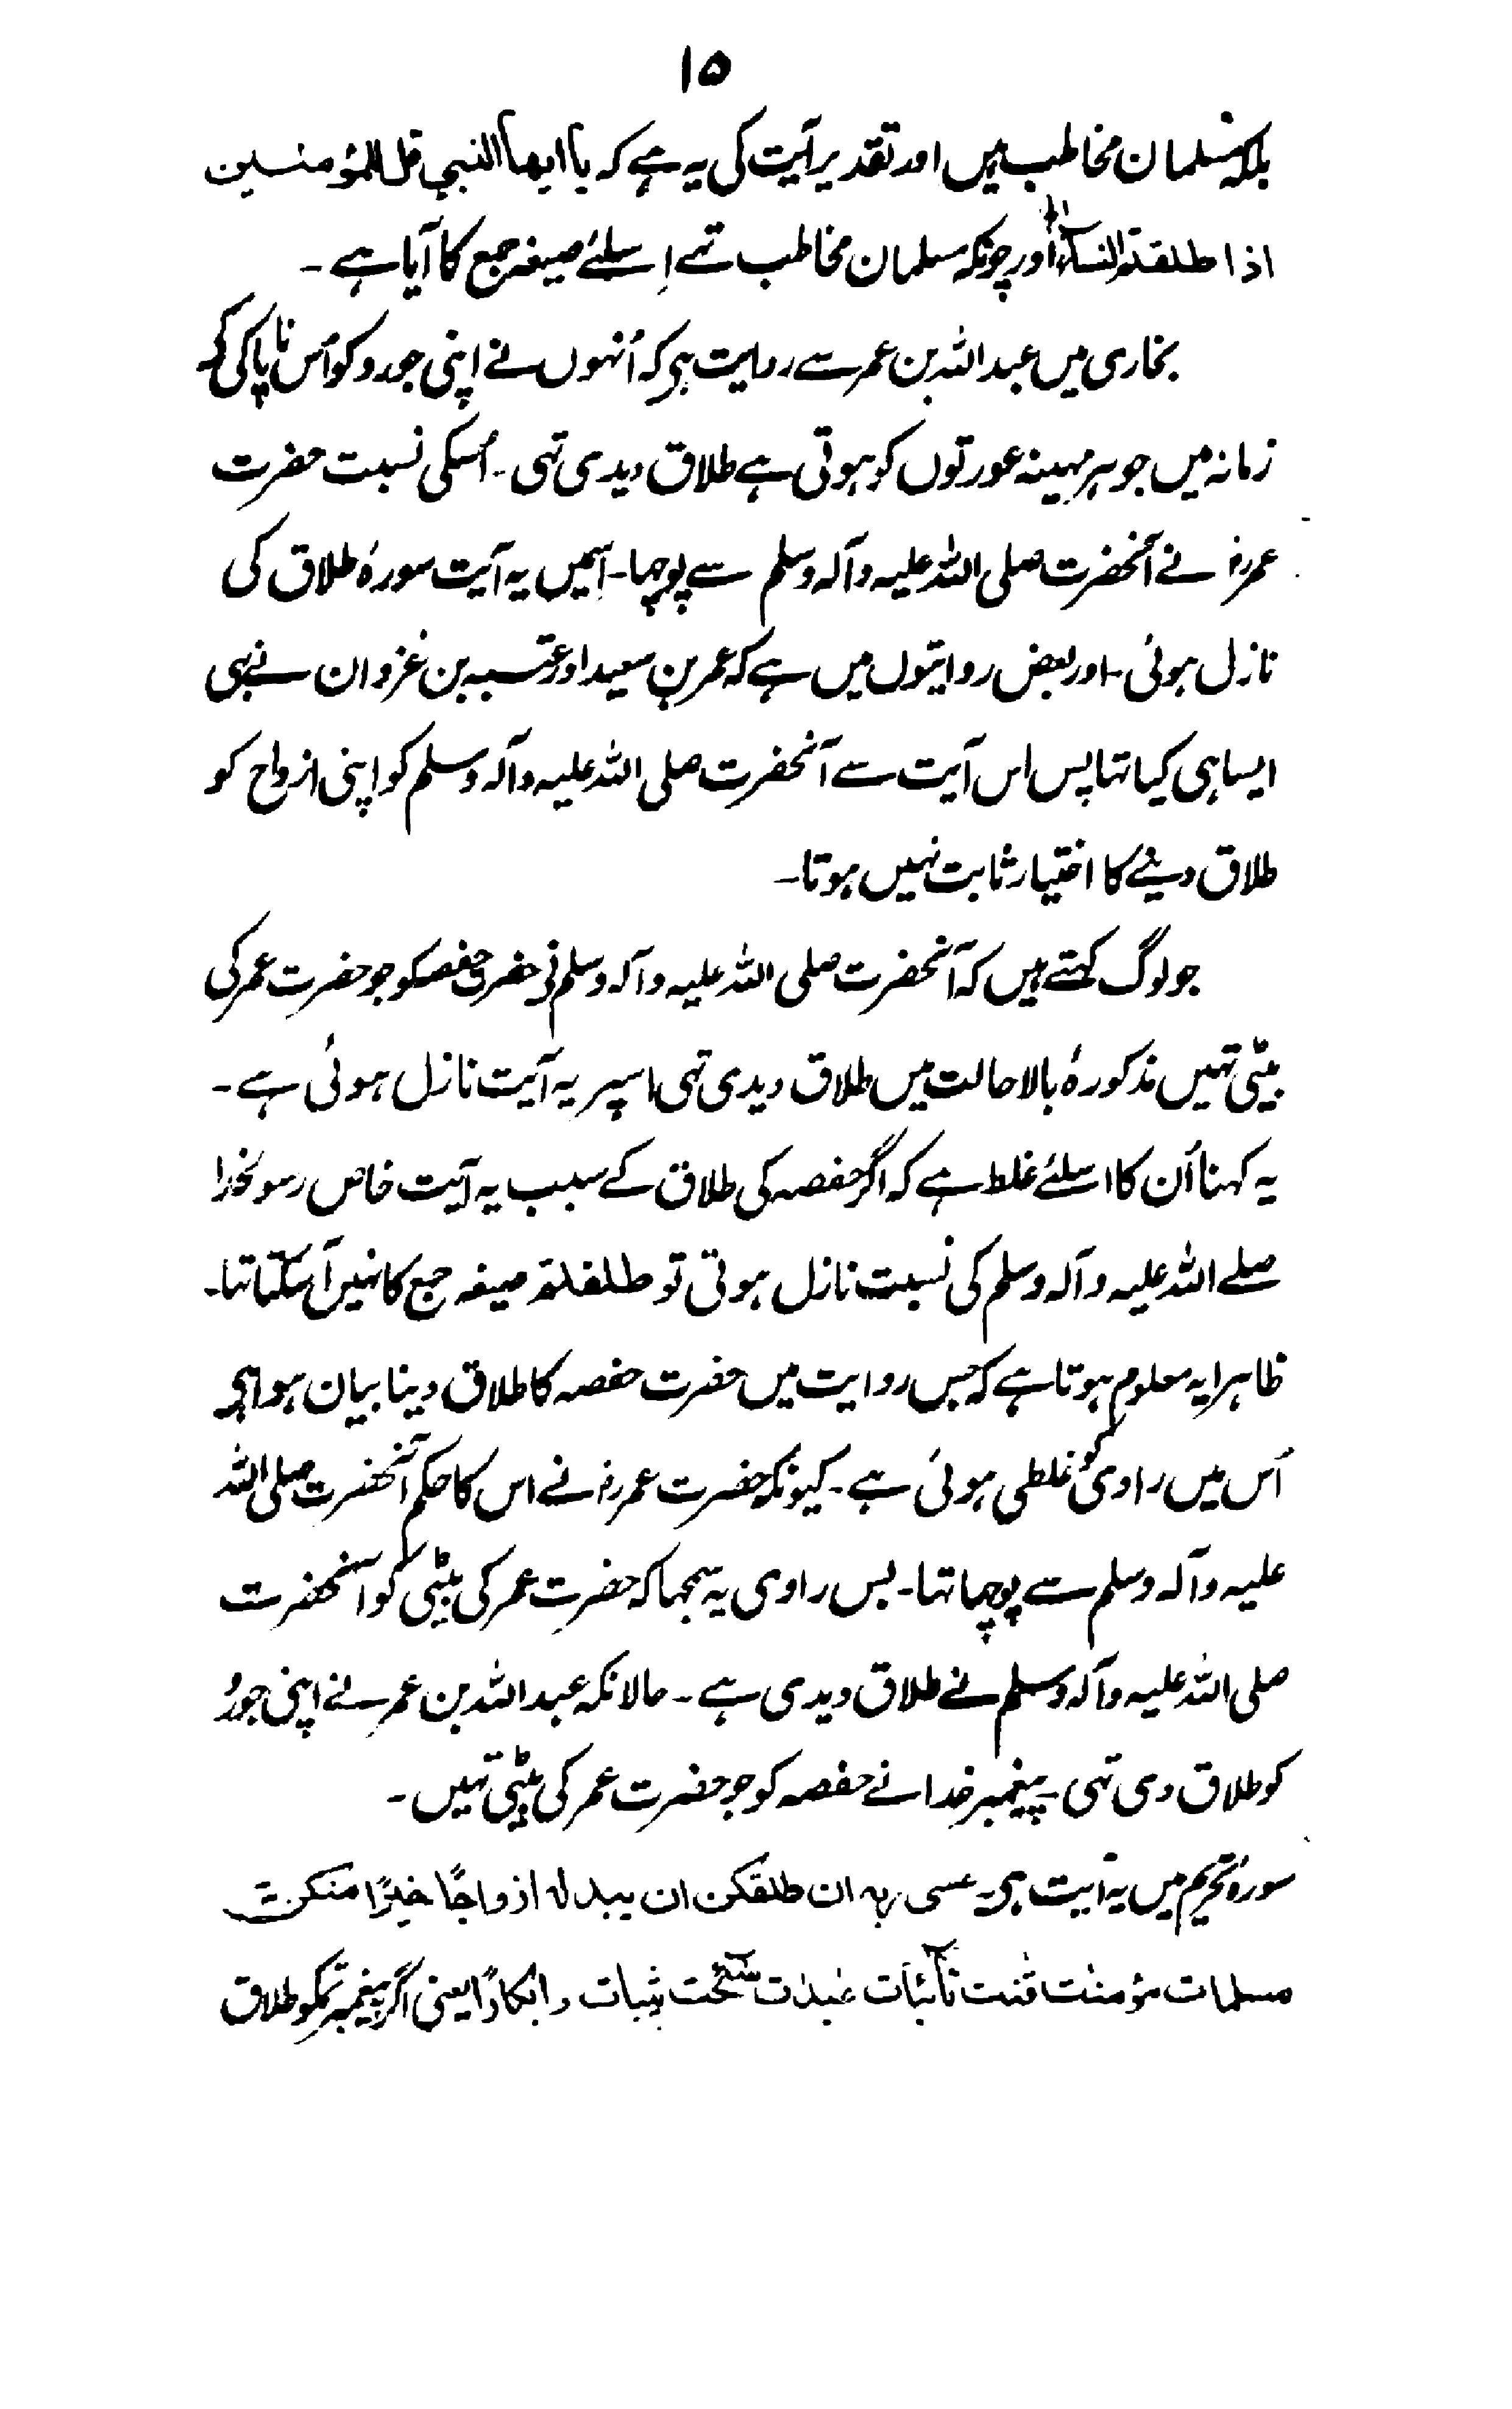 ۱۵
بلکہ مسلمان مخاطب ہیں اور تقدیر آیت کی یہ ہے کہ یا ایھا النبی قل للمؤمنین
اذا طلقتم النساء اور چونکہ مسلمان مخاطب تہے اِسلئے صیغہ جمع کا آیا ہے ۔
بخاری میں عبداللہ بن عمر سے روایت ہی کہ اُنہوں نے اپنی جورو کو اُس ناپاکی کے
زمانہ میں جو ہر مہینہ عورتوں کو ہوتی ہے طلاق دیدی تہی ۔ اُسکی نسبت حضرت
عمررض نے آنحضرت صلی اللہ علیہ وآلہ وسلم سے پوچہا ۔ اسمیں یہ آیت سورۂ طلاق کی
نازل ہوئی ۔ اور بعض روایتوں میں ہے کہ عمر بن سعید اور عتبہ بن غزوان نے بہی
ایسا ہی کیا تہا پس اس آیت سے آنحضرت صلی اللہ علیہ وآلہ وسلم کو اپنی ازواج کو
طلاق دینے کا اختیار ثابت نہیں ہوتا ۔
جو لوگ کہتے ہیں کہ آنحضرت صلی اللہ علیہ وآلہ وسلم نی حضرت حفصہ کو جو حضرت عمر کی
بیٹی تہیں مذکورۂ بالا حالت میں طلاق دیدی تہی اسپر یہ آیت نازل ہوئی ہے ۔
یہ کہنا اُن کا اسلئے غلط ہے کہ اگر حفصہ کی طلاق کے سبب یہ آیت خاص رسولخدا
صلے اللہ علیہ وآلہ وسلم کی نسبت نازل ہوتی تو طلقتم صیغہ جمع کا نہیں آسکتا تہا ۔
ظاہرا یہ معلوم ہوتا ہے کہ جس روایت میں حضرت حفصہ کا طلاق دینا بیان ہوا ہی
اُس میں راوی کو غلطی ہوئی ہے ۔ کیونکہ حضرت عمررض نے اس کا حکم آنحضرت صلی اللہ
علیہ وآلہ وسلم سے پوچہا تہا ۔ بس راوی یہ سمجہا کہ حضرت عمر کی بیٹی کو آنحضرت
صلی اللہ علیہ وآلہ وسلم نے طلاق دیدی ہے ۔ حالانکہ عبداللہ بن عمر نے اپنی جورُ
کو طلاق دی تہی ۔ پیغمبر خدا نے حفصہ کو جو حضرت عمر کی بیٹی تہیں ۔
سورۂ تحریم میں یہ آیت ہی ۔ عسی ربہ ان طلقکن ان یبدلہ ازواجًا خیرًا منکن
مسلمات مؤمنٰت قٰنتٰت تائبات عٰبدٰت سٰئحٰت ثیبات وابکارًا یعنی اگر پیغمبر تمکو طلاق